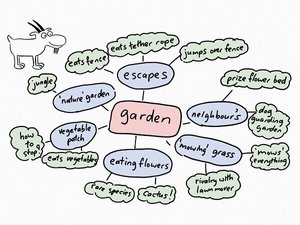 eats tether rope
jumps over fence
eats fence
escapes
prize flower bed
jungle
'nature' garden
garden
neighbour's
dog
guarding
garden
how
to
stop?
vegetable
patch
eats vegetables
eating flowers
'mowing' grass
'mows'
everything
rare species
cactus!
rivalry with
lawnmower